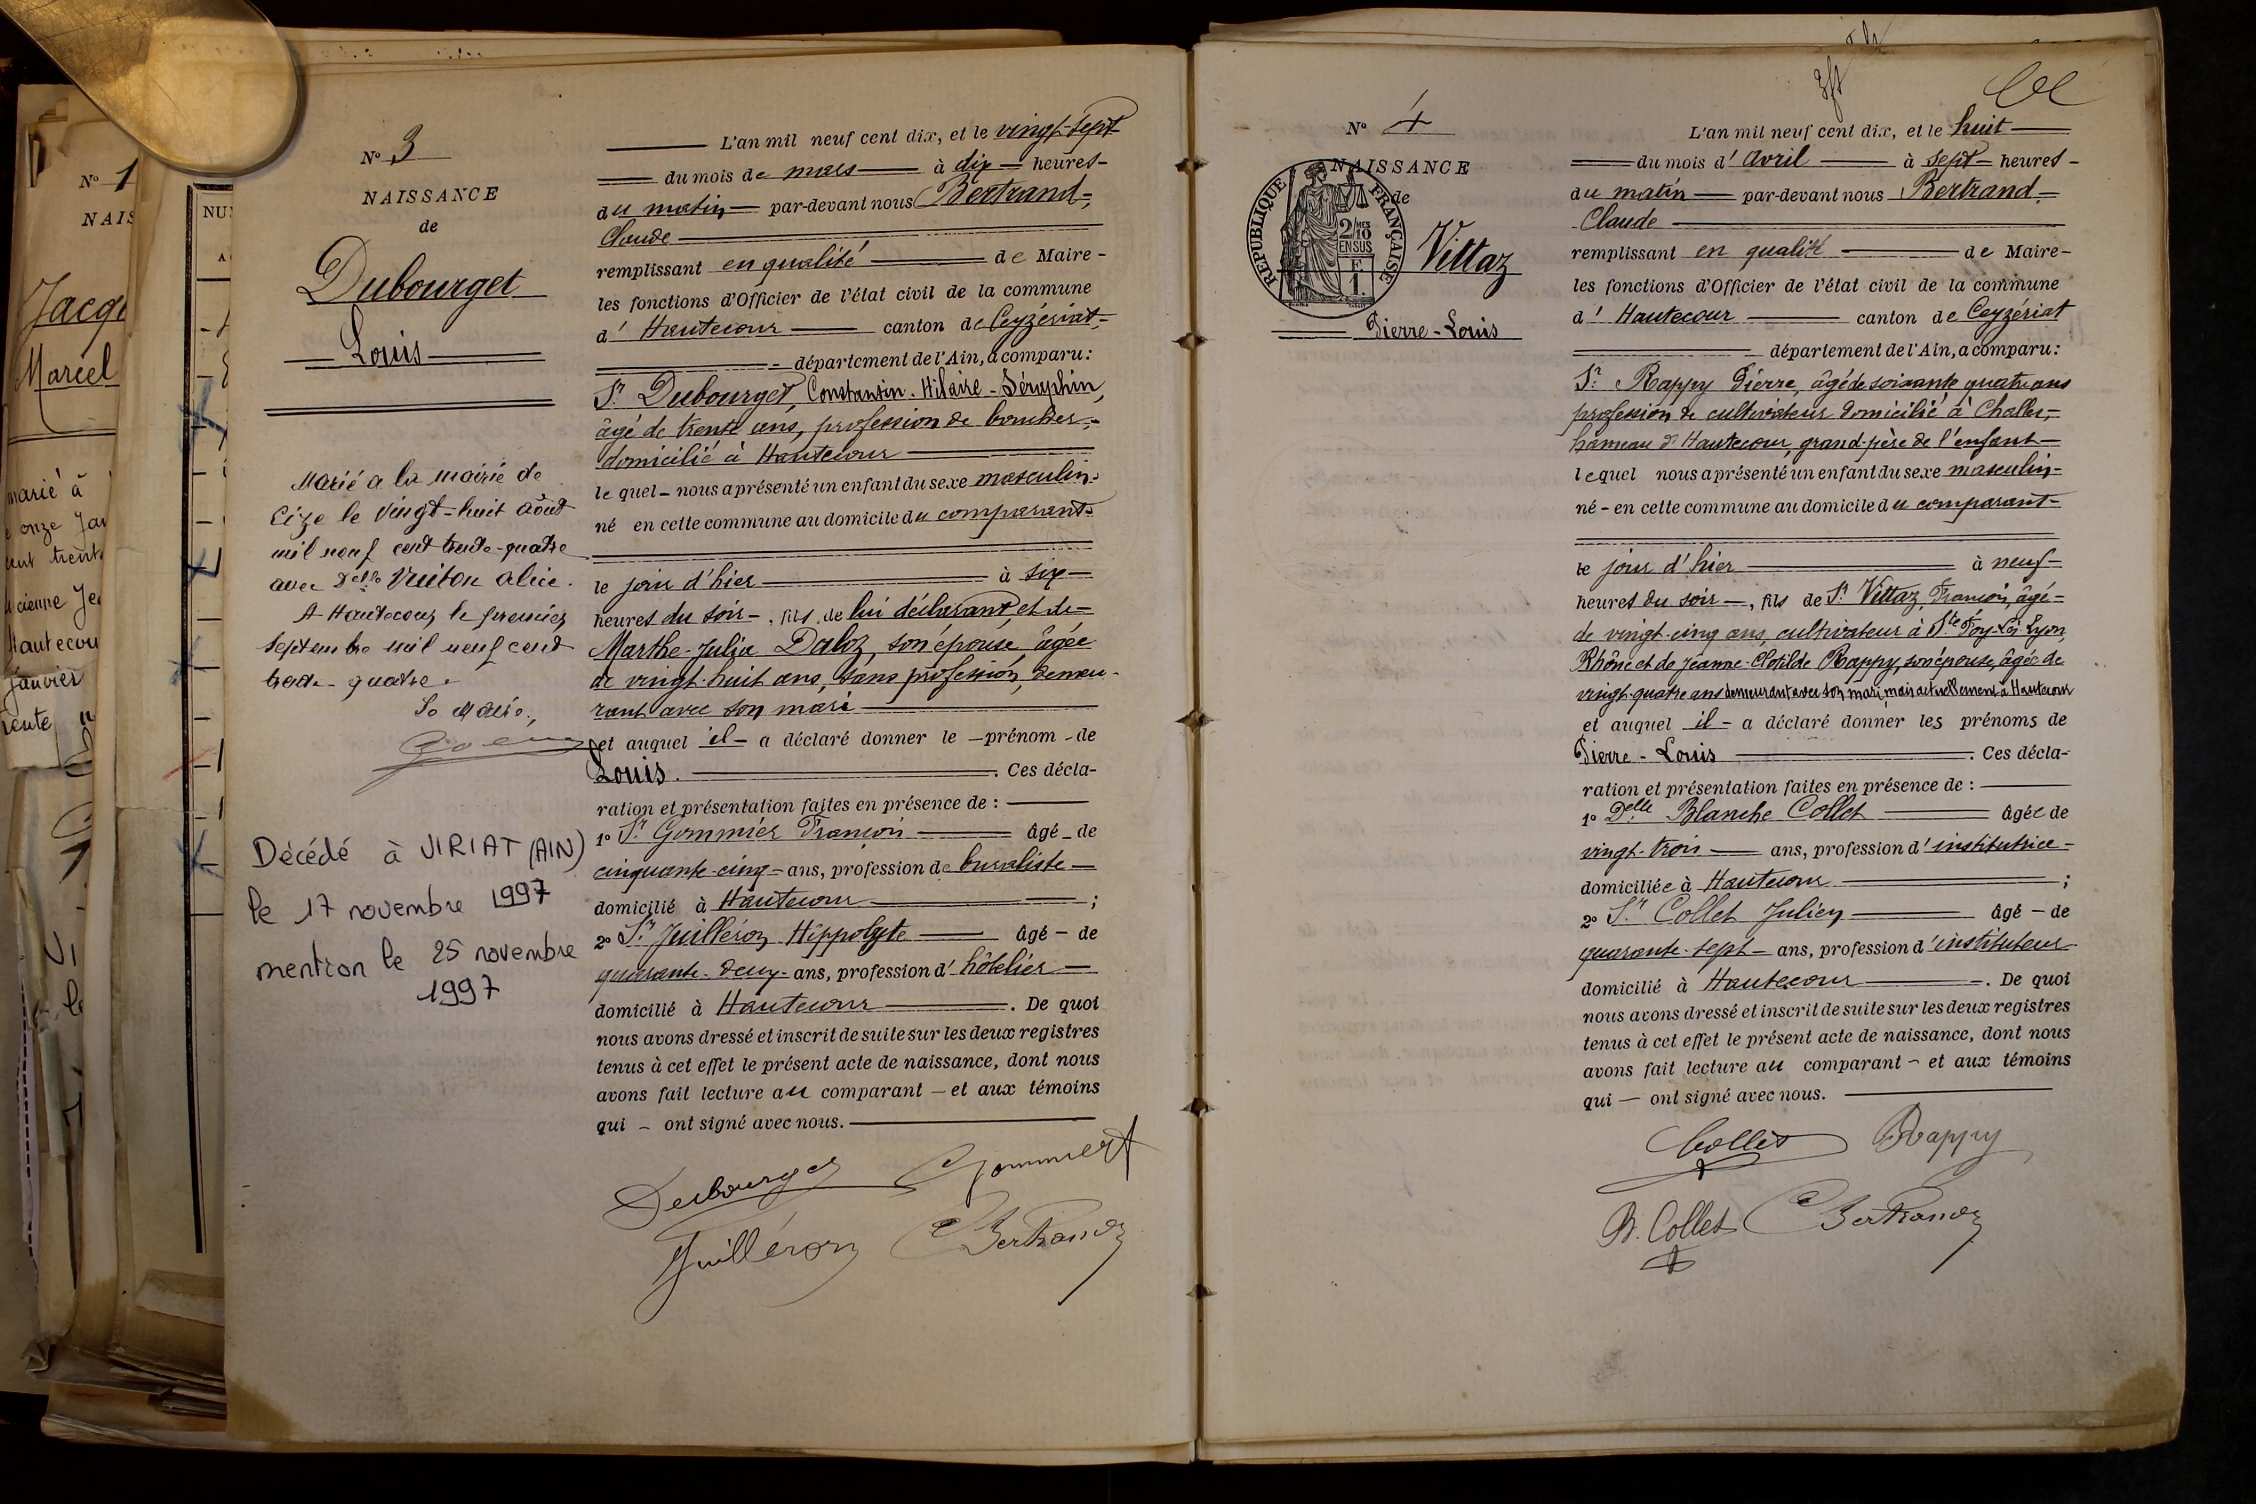 N° 1
NAIS
Jacq
Marcel
marié à
onze Jan
cent trent
Hautecou
janvier
NU
N° 3
NAISSANCE
de
Dubourget
Louis
Marié a la mairie de
Cize le vingt-huit août
mil neuf cent trente-quatre
avec Delle Vuiton Alice.
A Hautecour le premier
Septembre mil neuf cent
trente-quatre.
Le Maire,
Décédé à VIRIAT (AIN)
le 17 novembre 1997
mention le 25 novembre
1997
L'an mil neuf cent dix, et le vingt-sept
du mois de mars à dix heures
du matin par-devant nous Bertrand
Claude
remplissant en qualité de Maire
les fonctions d'Officier de l'état civil de la commune
d' Hautecour canton de Ceyzériat
département de l'Ain, a comparu :
Sr Dubourget, Constantin-Hilaire-Séraphin,
âgé de trente ans, profession de boucher,
domicilié à Hautecour
le quel nous a présenté un enfant du sexe masculin
né en cette commune au domicile du comparant
le jour d'hier à six
heures du soir, fils de lui déclarant, et de
Marthe-Julia Daloz, son épouse, âgée
de vingt-huit ans, sans profession, demeu-
rant avec son mari
et auquel il a déclaré donner le prénom de
Louis. Ces décla-
ration et présentation faites en présence de :
1° Sr Gommier François âgé de
cinquante-cinq ans, profession de buraliste
domicilié à Hautecour ;
2° Sr Juilléron Hippolyte âgé de
quarante-deux ans, profession d' hôtelier
domicilié à Hautecour. De quoi
nous avons dressé et inscrit de suite sur les deux registres
tenus à cet effet le présent acte de naissance, dont nous
avons fait lecture au comparant et aux témoins
qui ont signé avec nous.
Dubourget Gommier
Juilléron C Bertrand
N° 4
NAISSANCE
de
RÉPUBLIQUE FRANÇAISE
2/10 MES
EN SUS
F
1.
Vittaz
Pierre-Louis
L'an mil neuf cent dix, et le huit
du mois d' avril à sept heures
du matin par-devant nous Bertrand
Claude
remplissant en qualité de Maire
les fonctions d'Officier de l'état civil de la commune
d' Hautecour canton de Ceyzériat
département de l'Ain, a comparu :
Sr Rappy Pierre, âgé de soixante quatre ans
profession de cultivateur domicilié à Challes,
hameau d' Hautecour, grand-père de l'enfant
lequel nous a présenté un enfant du sexe masculin
né en cette commune au domicile du comparant
le jour d'hier à neuf
heures du soir, fils de Sr Vittaz, François, âgé
de vingt-cinq ans, cultivateur à Ste Foy-Lès Lyon,
Rhône et de Jeanne-Clotilde Rappy, son épouse, âgée de
vingt-quatre ans demeurant avec son mari, mais actuellement à Hautecour
et auquel il a déclaré donner les prénoms de
Pierre-Louis. Ces décla-
ration et présentation faites en présence de :
1° Delle Blanche Collet âgée de
vingt-trois ans, profession d' institutrice
domiciliée à Hautecour ;
2° Sr Collet Julien âgé de
quarante-sept ans, profession d' instituteur
domicilié à Hautecour. De quoi
nous avons dressé et inscrit de suite sur les deux registres
tenus à cet effet le présent acte de naissance, dont nous
avons fait lecture au comparant et aux témoins
qui ont signé avec nous.
Collet Rappy
B. Collet C Bertrand